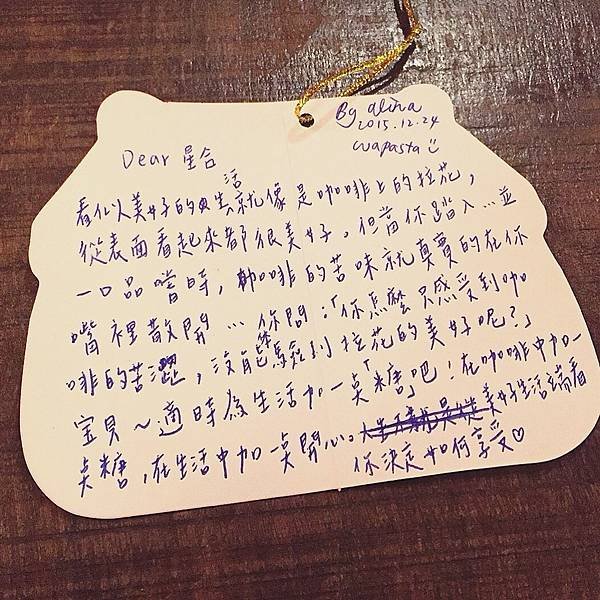 By alina
2015.12.24
wapasta
Dear 星合
看似美好的生活就像是咖啡上的拉花，
從表面看起來都很美好，但當你踏入...並
一口品嚐時，咖啡的苦味就真實的在你
嘴裡散開...你問：「你怎麼只感受到咖
啡的苦澀，沒能感受到拉花的美好呢？」
寶貝～適時為生活加一點「糖」吧！在咖啡中加一
點糖，在生活中加一點開心。美好生活端看
你決定如何享受♡